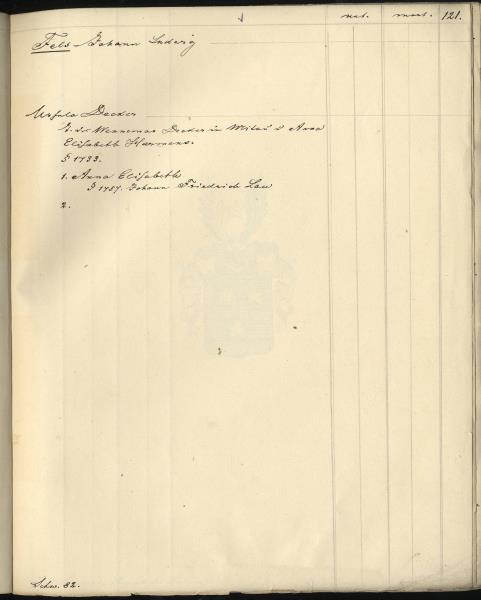 nat. mort. 121.
Fels Johann Ludwig
Ursula Decker
T. des Wennemar Decker in Mitau u Anna
Elisabeth Harmens.
1733.
1. Anna Elisabeth
1757. Johann Friedrich Lau
2.
Schw. 82.